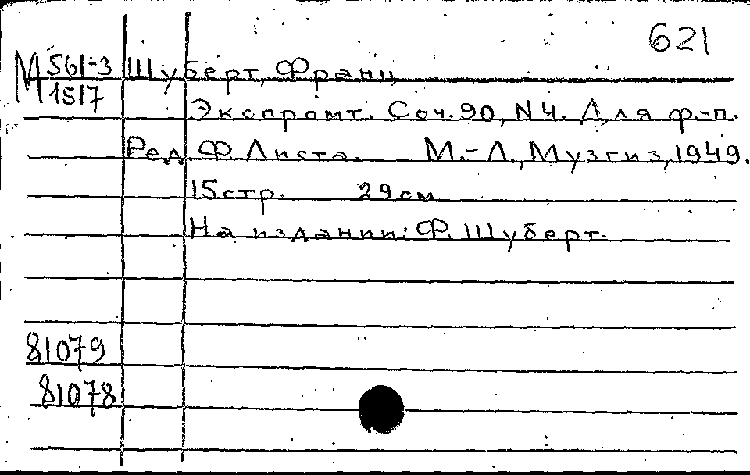 621
М 561-3 Шуберт, Франц
1517
Экспромт. Соч. 90, N4. Для ф.-п.
Ред. Ф. Листа. М.-Л., Музгиз, 1949.
15 стр. 29 см
На издании: Ф. Шуберт.
81079
81078